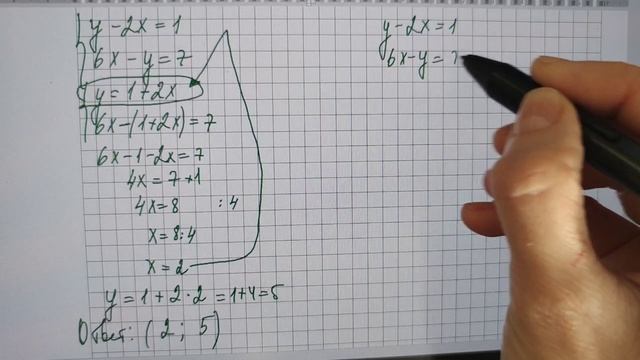 y - 2x = 1
6x - y = 7
y = 1 + 2x
6x - (1 + 2x) = 7
6x - 1 - 2x = 7
4x = 7 + 1
4x = 8 :4
x = 8:4
x = 2
y = 1 + 2 · 2 = 1+4=5
Ответ: (2; 5)
y - 2x = 1
6x - y =